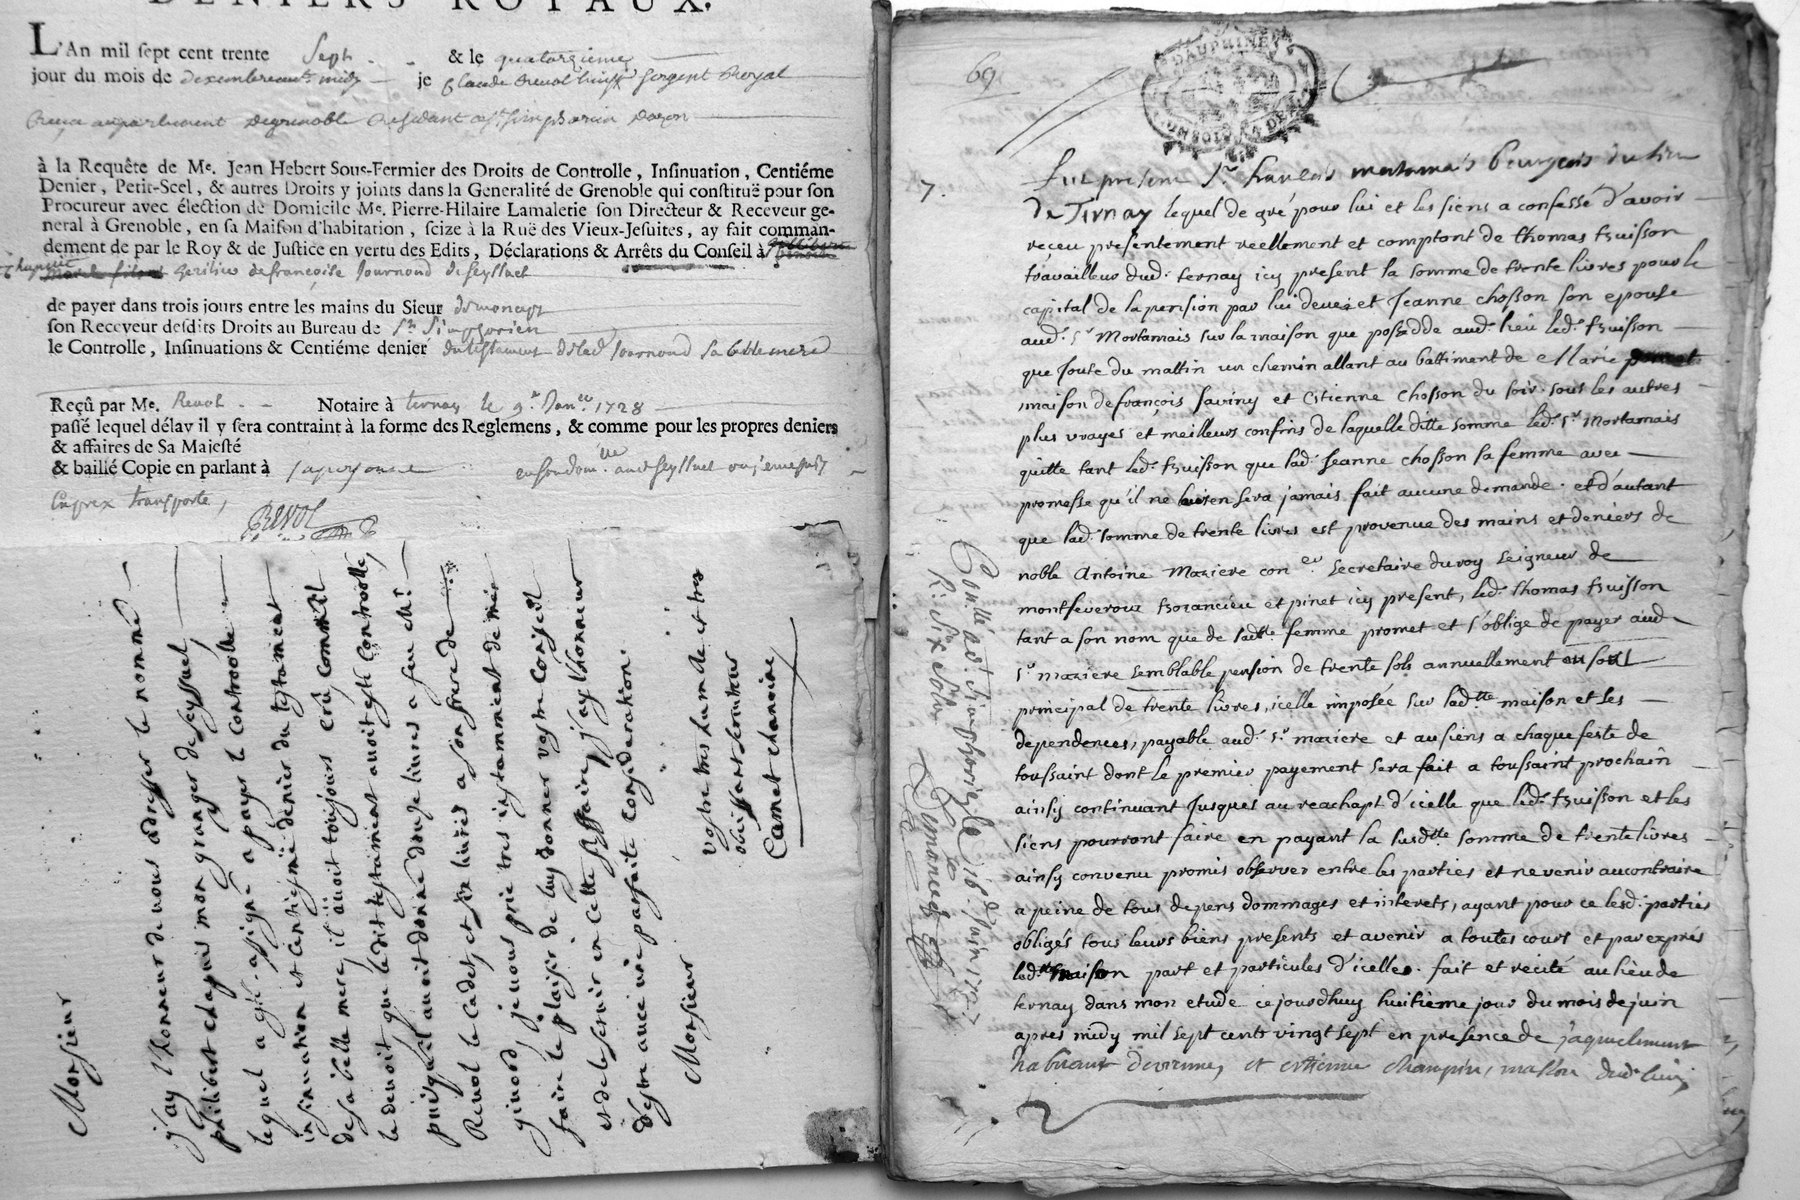 DENIERS ROYAUX.
L'An mil sept cent trente Sept & le quatorzieme
jour du mois de decembre avt midy je Claude Revol huissr sergent Royal
Receu au parlement de grenoble Residant a St simphorin dozon
à la Requête de Me. Jean Hebert Sous-Fermier des Droits de Controlle, Insinuation, Centiéme
Denier, Petit-Scel, & autres Droits y joints dans la Generalité de Grenoble qui constituë pour son
Procureur avec élection de Domicile Me. Pierre-Hilaire Lamalerie son Directeur & Receveur ge-
neral à Grenoble, en sa Maison d'habitation, scize à la Ruë des Vieux-Jesuites, ay fait comman-
dement de par le Roy & de Justice en vertu des Edits, Déclarations & Arrêts du Conseil à
heritier de françoise Journoud de seyssuel
de payer dans trois jours entre les mains du Sieur
son Receveur desdits Droits au Bureau de St Simphorien
le Controlle, Insinuations & Centiéme denier du testament de lad Journoud sa belle mere
Reçû par Me. Revol Notaire à ternay le 9e Janer 1728
passé lequel délay il y sera contraint à la forme des Reglemens, & comme pour les propres deniers
& affaires de Sa Majesté
& baillé Copie en parlant à sa personne en son domlle aud seyssuel ou je me suis
Exprex transporté,
REVOL
Monsieur
j'ay l'honneur de vous adresser le nommé
philibert chapuis mon granger de seyssuel
lequel a esté assigné a payer le Controolle
insinuation et Centiesme denier du testament
de sa belle mere, il avoit toujours crû comme il
le devoit que le dit testament avoit esté Controollé,
puisqu'il avoit donné douze livres a feu Mr
Revol le Cadet, et six livres a son frere de
givord, je vous prie tres instamment de me
faire le plaisir de luy donner vostre Conseil
et de le servir en Cette affaire, j'ay l'honneur
d'estre avec une parfaite Consideration.
Monsieur
vostre tres humble et tres
obeissant serviteur
Camet chanoine
69
DAUPHINE
7.
fut present Sr. charles mortamais bourgeois du lieu
de Ternay lequel de gré pour lui et les siens a confessé d'avoir
reçeu presentement reellement et comptant de thomas buisson
travailleur dud. ternay icy present la somme de trente livres pour le
capital de la pension par lui deue et Jeanne chosson son epouse
aud. Sr Mortamais sur la maison que possedde aud. lieu led. buisson
que Joute du mattin un chemin allant au battiment de Marie
maison de françois saviny et Estienne chosson du soir. sous les autres
plus vrayes et meilleurs confins de laquelle ditte somme led. Sr Mortamais
quitte tant led. buisson que lad. Jeanne chosson sa femme avec
promesse qu'il ne leur en sera jamais fait aucune demande. et d'autant
que lad. somme de trente livres est provenue des mains et deniers de
noble Antoine Maziere coner. secretaire du roy seigneur de
montseveroux et pinet icy present, led. thomas buisson
tant a son nom que de sadtte femme promet et s'oblige de payer aud.
Sr maziere semblable pension de trente sols annuellement au sort
principal de trente livres, icelle imposée sur ladtte maison et ses
dependences, payable aud. Sr maziere et au siens a chaque feste de
toussaint dont le premier payement sera fait a toussaint prochain
ainsy continuant Jusques au reachapt d'icelle que led. buisson et les
siens pourront faire en payant la susdtte somme de trente livres
ainsy convenu promis observer entre les parties et ne venir au contraire
a peine de tous depens dommages et interets, ayant pour ce lesd. parties
obligés tous leurs biens presents et avenir a toutes cours et par exprés
ladtte maison part et particules d'icelle. fait et recité au lieu de
ternay dans mon etude cejourdhuy huitième jour du mois de juin
apres midy mil sept cents vingt sept en presence de
habitant de vienne, et estienne champin, masson dud. lieu,
Conllé a St Simphorien le 16e Juin 1727
R. six sols
Simonnet